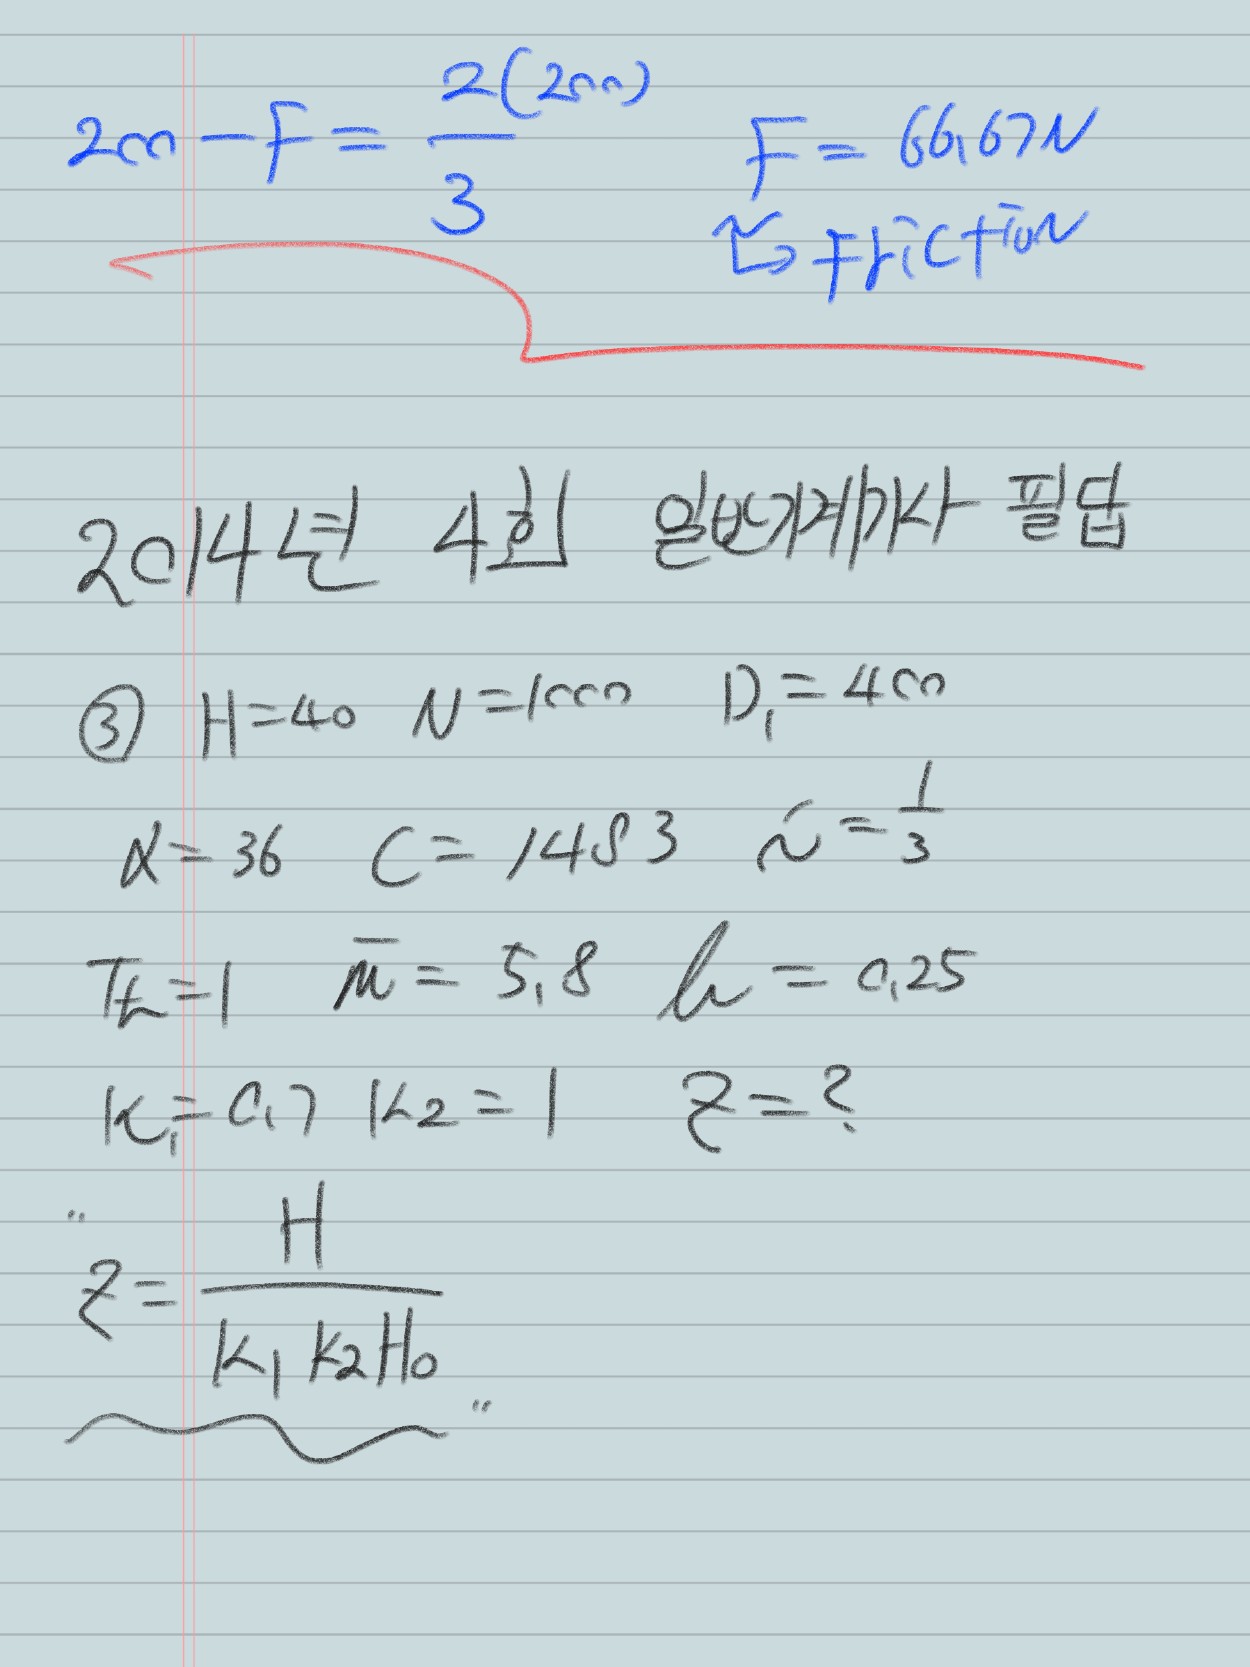 200 - F = 2(200)/3 F = 66.67N
↳ Friction
2014년 4회 일반기계기사 필답
③ H=40 N=1000 D₁=400
α=36 C=1483 i=1/3
Tt=1 m̄=5.8 μ=0.25
K₁=0.7 K2=1 Z=?
"Z = H/(K₁ K2 H0)"